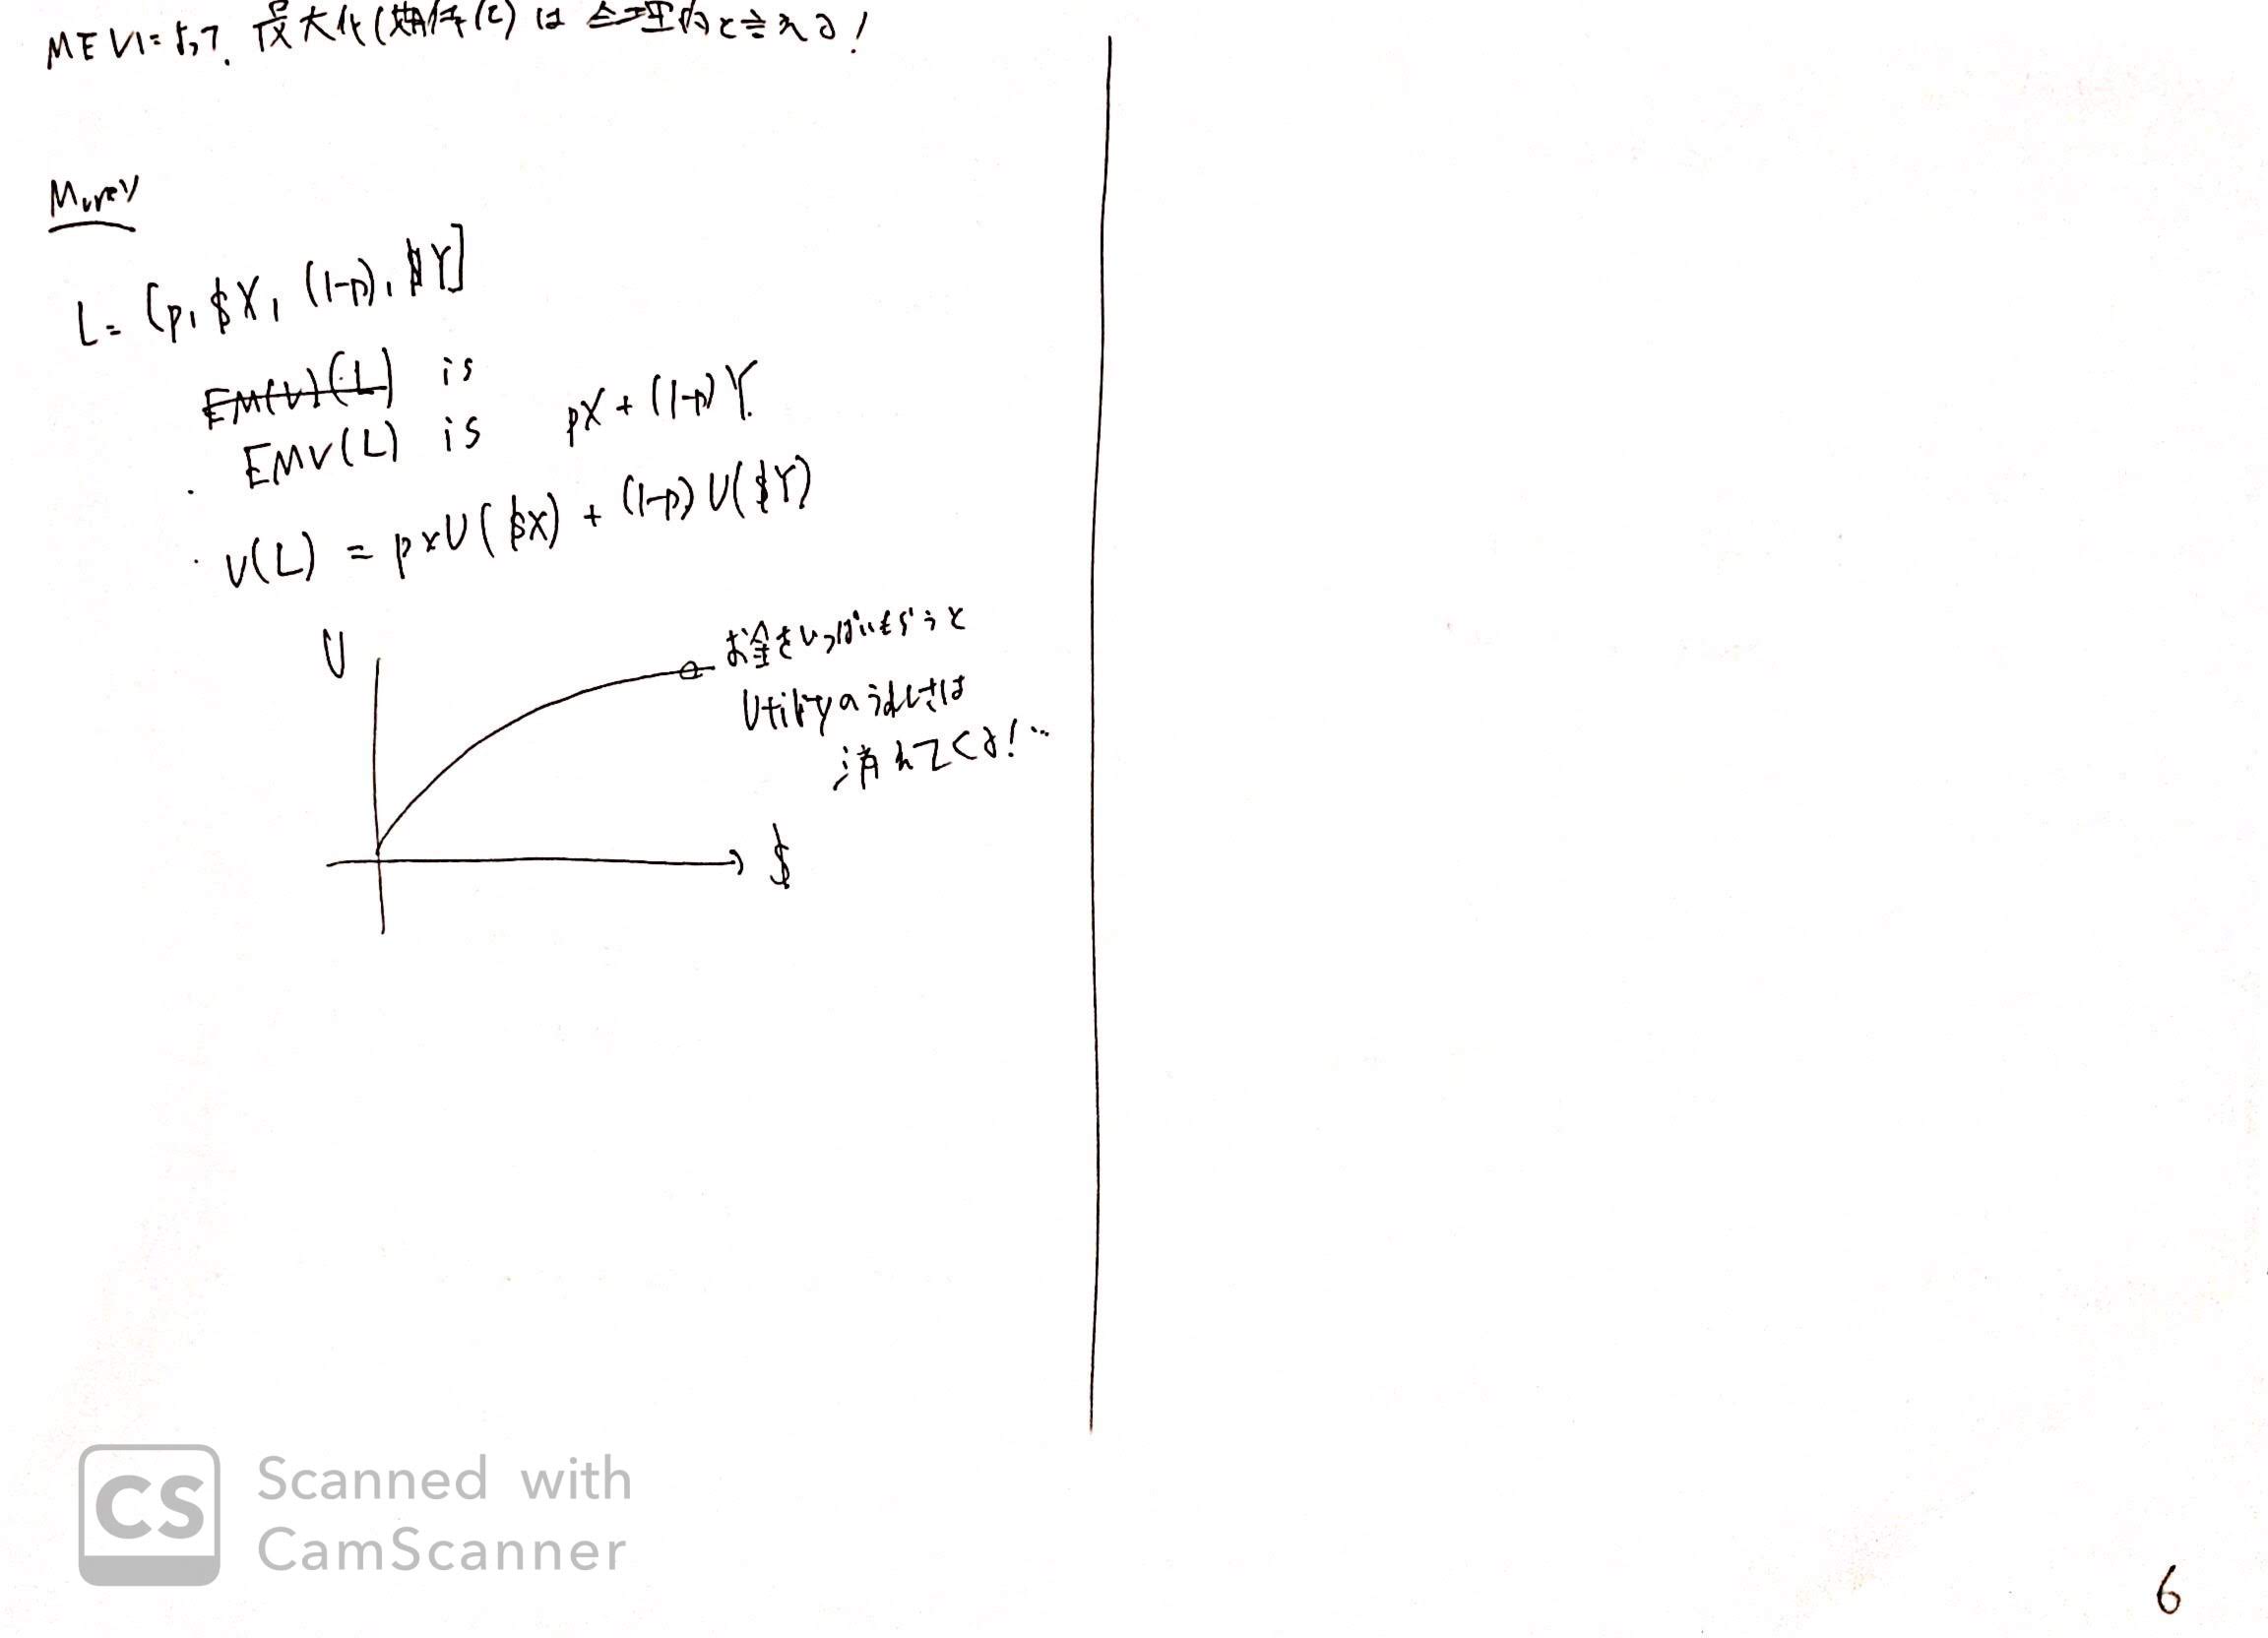 MEUによって、最大化(期待値)は合理的と言える!
Money
L = [p, $X, (1-p), $Y]
EM(V)(L) is
・ EMV(L) is pX + (1-p)Y
・ U(L) = p×U($X) + (1-p) U($Y)
U
お金をいっぱいもらうと
Utilityのうれしさは
消れてくる!…
$
CS Scanned with
CamScanner
6